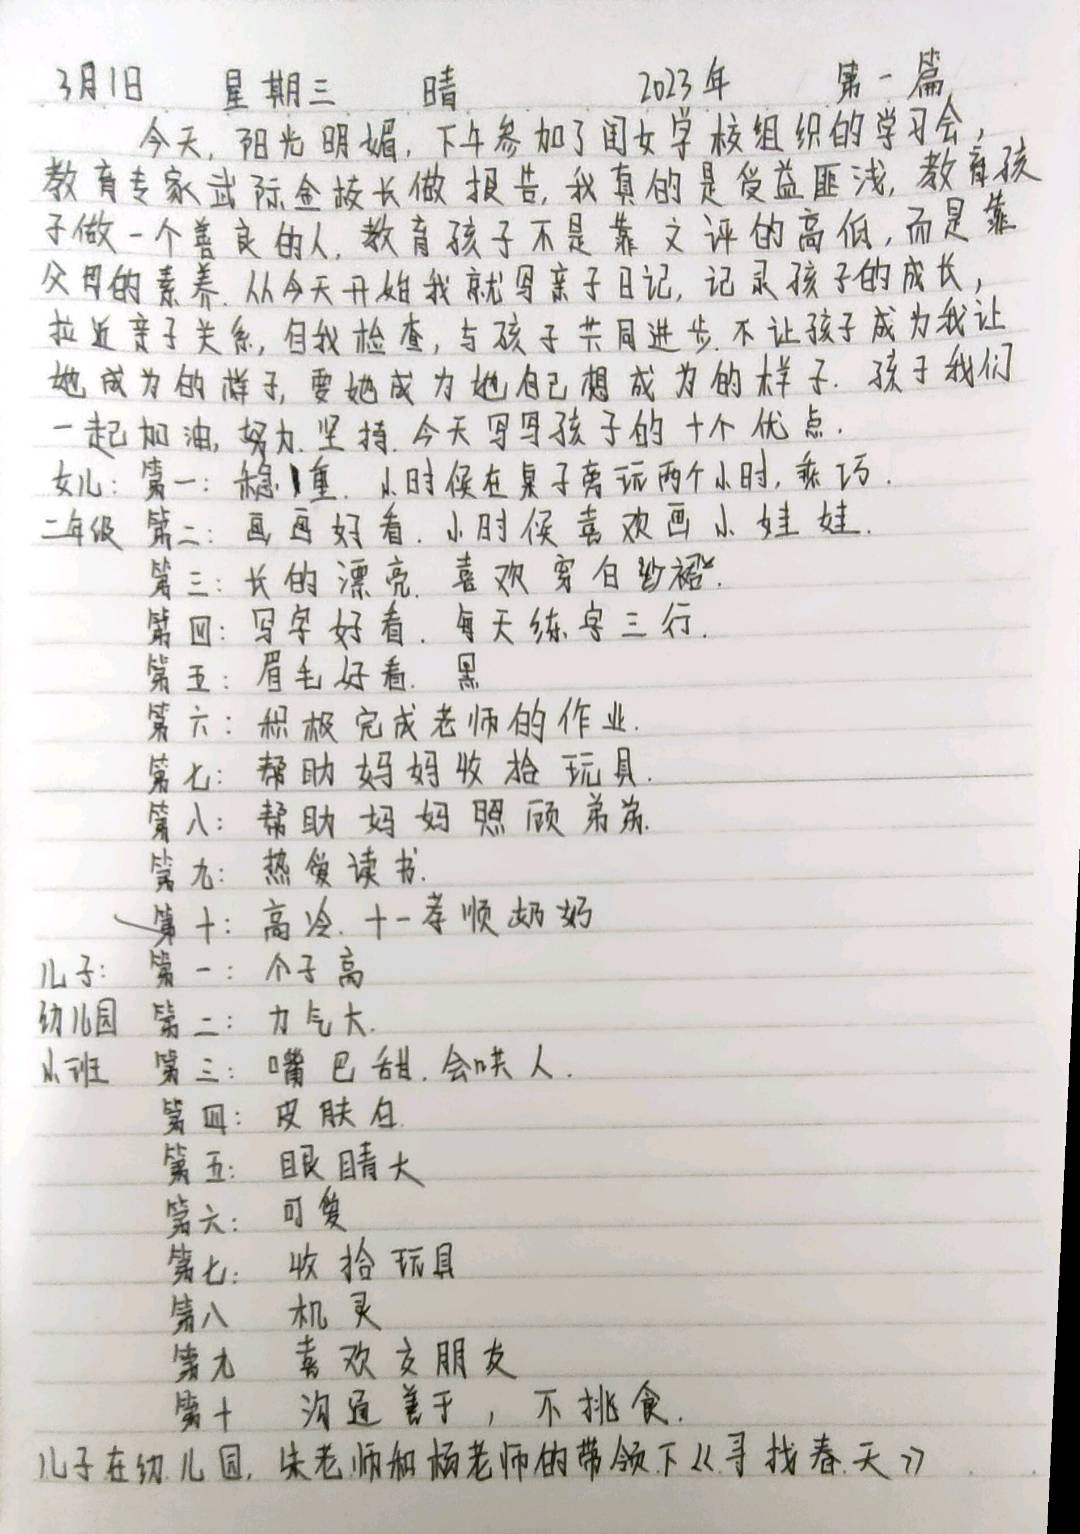 3月1日 星期三 晴 2023年 第一篇
今天,阳光明媚,下午参加了闺女学校组织的学习会,
教育专家武际金校长做报告,我真的是受益匪浅,教育孩
子做一个善良的人,教育孩子不是靠文评的高低,而是靠
父母的素养.从今天开始我就写亲子日记,记录孩子的成长,
拉近亲子关系,自我检查,与孩子共同进步.不让孩子成为我让
她成为的样子,要她成为她自己想成为的样子.孩子我们
一起加油,努力.坚持.今天写写孩子的十个优点.
女儿:第一:稳重.小时候在桌子旁玩两个小时,乖巧.
二年级 第二:画画好看.小时候喜欢画小娃娃.
第三:长的漂亮.喜欢穿白纱裙.
第四:写字好看.每天练字三行.
第五:眉毛好看.黑
第六:积极完成老师的作业.
第七:帮助妈妈收拾玩具.
第八:帮助妈妈照顾弟弟.
第九:热爱读书.
第十:高冷.十一孝顺奶奶
儿子:第一:个子高
幼儿园 第二:力气大.
小班 第三:嘴巴甜.会哄人.
第四:皮肤白.
第五:眼睛大
第六:可爱
第七:收拾玩具
第八 机灵
第九 喜欢交朋友
第十 沟通善于,不挑食.
儿子在幼儿园,朱老师和杨老师的带领下《寻找春天》